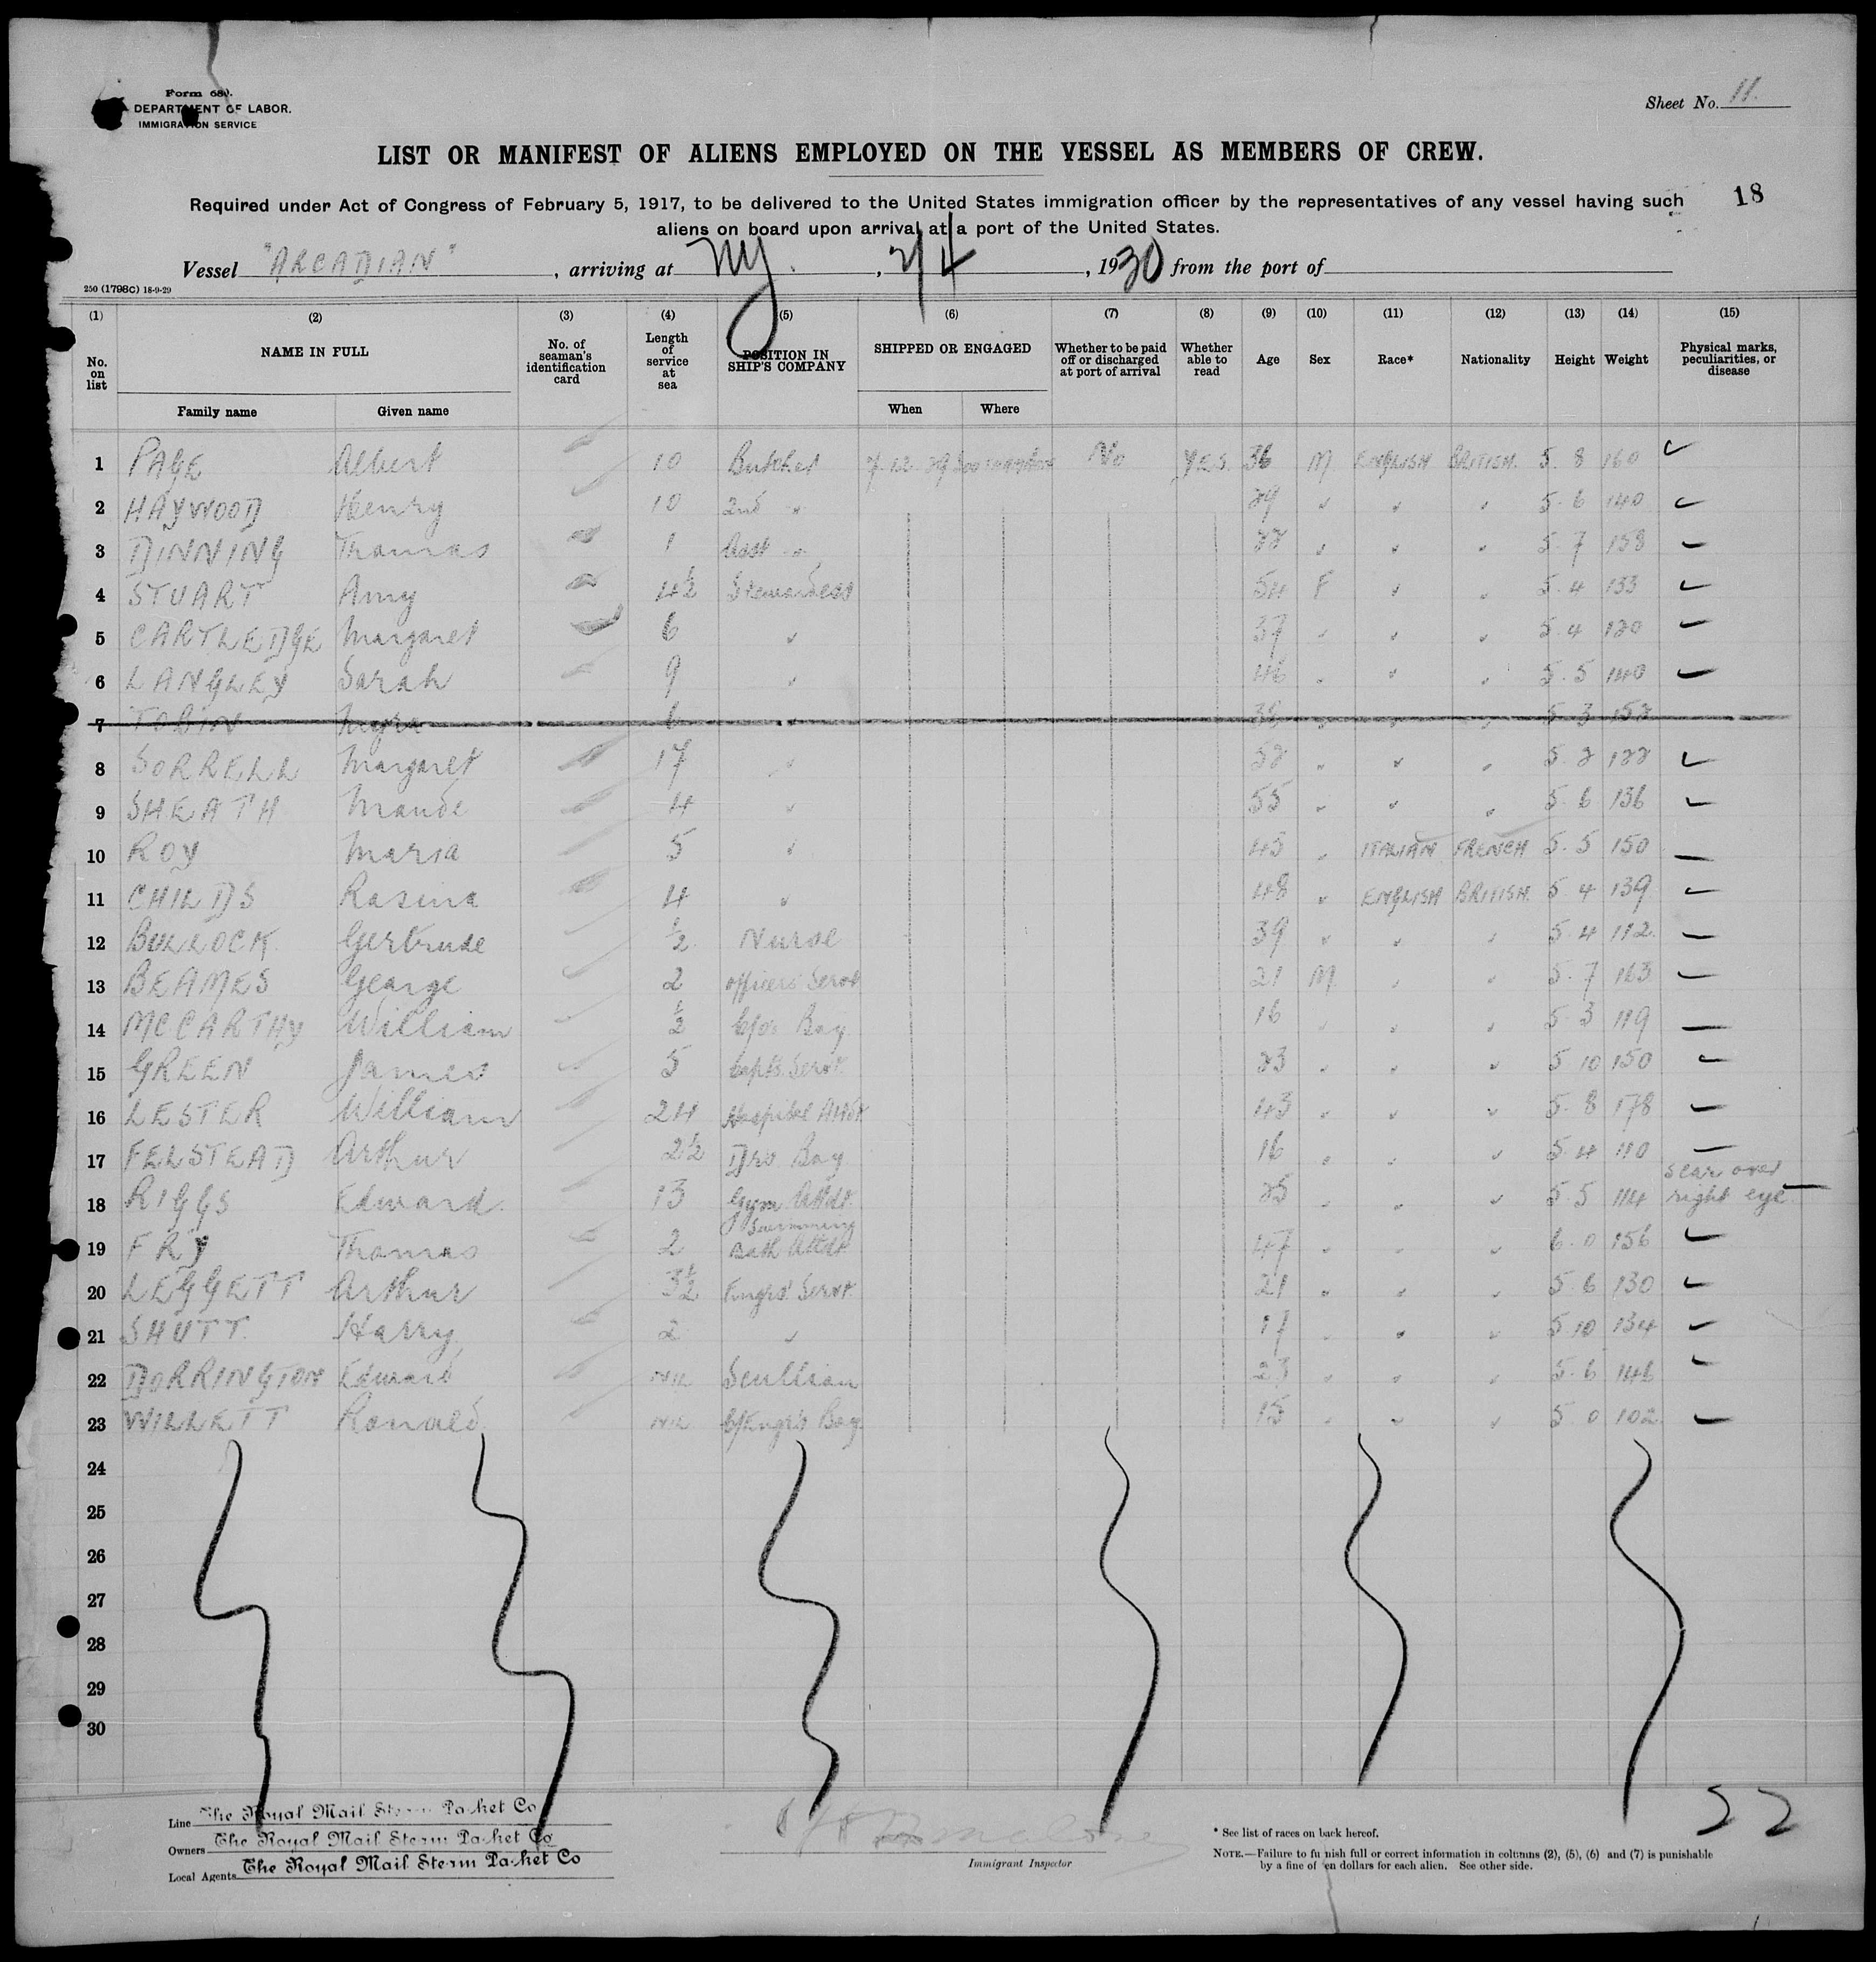 Form 680.
DEPARTMENT OF LABOR.
IMMIGRATION SERVICE
Sheet No. 11.
LIST OR MANIFEST OF ALIENS EMPLOYED ON THE VESSEL AS MEMBERS OF CREW.
Required under Act of Congress of February 5, 1917, to be delivered to the United States immigration officer by the representatives of any vessel having such
aliens on board upon arrival at a port of the United States.
18
Vessel "ARCADIAN", arriving at NY., 2/4, 1930 from the port of
250 (1798C) 18-9-29
(1) (2) (3) (4) (5) (6) (7) (8) (9) (10) (11) (12) (13) (14) (15)
No. on list NAME IN FULL No. of seaman's identification card Length of service at sea POSITION IN SHIP'S COMPANY SHIPPED OR ENGAGED Whether to be paid off or discharged at port of arrival Whether able to read Age Sex Race* Nationality Height Weight Physical marks, peculiarities, or disease
Family name Given name When Where
1 PAGE Albert 10 Butcher 7.12.29 Southampton No YES. 36 M ENGLISH BRITISH. 5. 8 160 ✓
2 HAYWOOD Henry 10 2nd " 29 " " " 5. 6 140 ✓
3 DINNING Thomas 1 Asst " 22 " " " 5. 7 158
4 STUART Amy 4½ Stewardess 54 F " " 5. 4 133 ✓
5 CARTLEDGE Margaret 6 " 37 " " " 5. 4 120
6 LANGLEY Sarah 9 " 46 " " " 5. 5 140
7 TOBIN Myra 6 " " " " 5 3 152
8 SORRELL Margaret 17 " 52 " " " 5. 2 122 ✓
9 SHEATH Maude 4 " 55 " " " 5. 6 136
10 ROY Maria 5 " 45 " ITALIAN FRENCH 5. 5 150
11 CHILDS Rasina 4 " 48 " ENGLISH BRITISH. 5. 4 139
12 BULLOCK Gertrude ½ Nurse 39 " " " 5. 4 112.
13 BEAMES George 2 Officers' Servt 21 M. " " 5. 7 163
14 MCCARTHY William ½ Boy 16 " " " 5. 3 119
15 GREEN James 5 Capt's. Servt. 23 " " " 5. 10 150
16 LESTER William 24 Hospital Attdt 43 " " " 5. 8 178
17 FELSTEAD Arthur 2½ Boy 16 " " " 5. 4 110
18 RIGGS Edward. 13 Gym. Attdt. 25 " " " 5. 5 114 Scar over right eye.
19 FRY Thomas 2 Swimming Bath Attdt 47 " " " 6. 0 156
20 LEGGETT Arthur 3½ Engrs' Servt. 21 " " " 5. 6 130
21 SHUTT. Harry 2 " 17 " " " 5. 10 134
22 DORRINGTON Edward NIL Scullion 23 " " " 5. 6 146
23 WILLETT Ronald. NIL C/Engr's Boy. 15 " " " 5. 0 102
24
25
26
27
28
29
30
22
Line The Royal Mail Steam Packet Co
Owners The Royal Mail Steam Packet Co
Local Agents The Royal Mail Steam Packet Co
Immigrant Inspector
* See list of races on back hereof.
NOTE.—Failure to furnish full or correct information in columns (2), (5), (6) and (7) is punishable
by a fine of ten dollars for each alien. See other side.